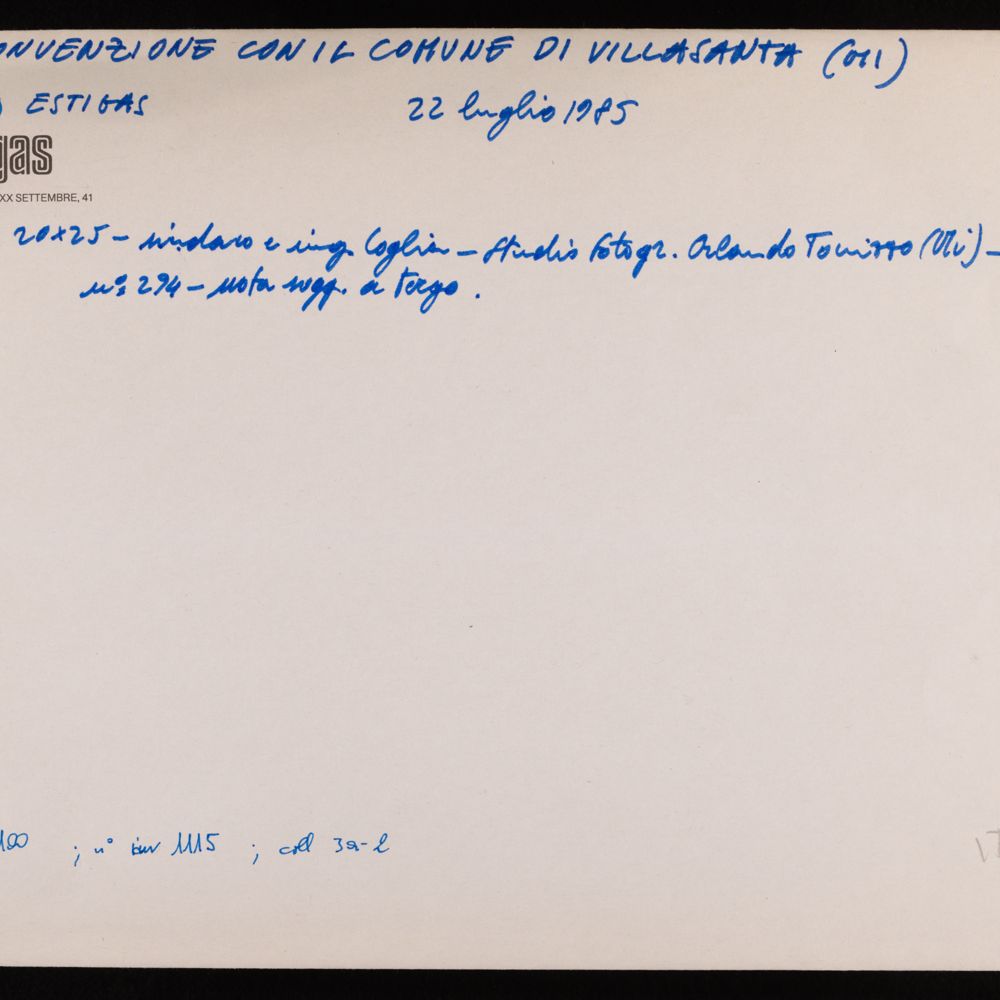 ONVENZIONE CON IL COMUNE DI VILLASANTA (MI)
) ESTIGAS 22 luglio 1985
gas
XX SETTEMBRE, 41
20x25 - sindaco e ing. Coglia - Studio fotogr. Orlando (Mi) -
n°: 294 - nota sugg. a tergo.
100 ; n° inv 1115 ; coll 3a-2